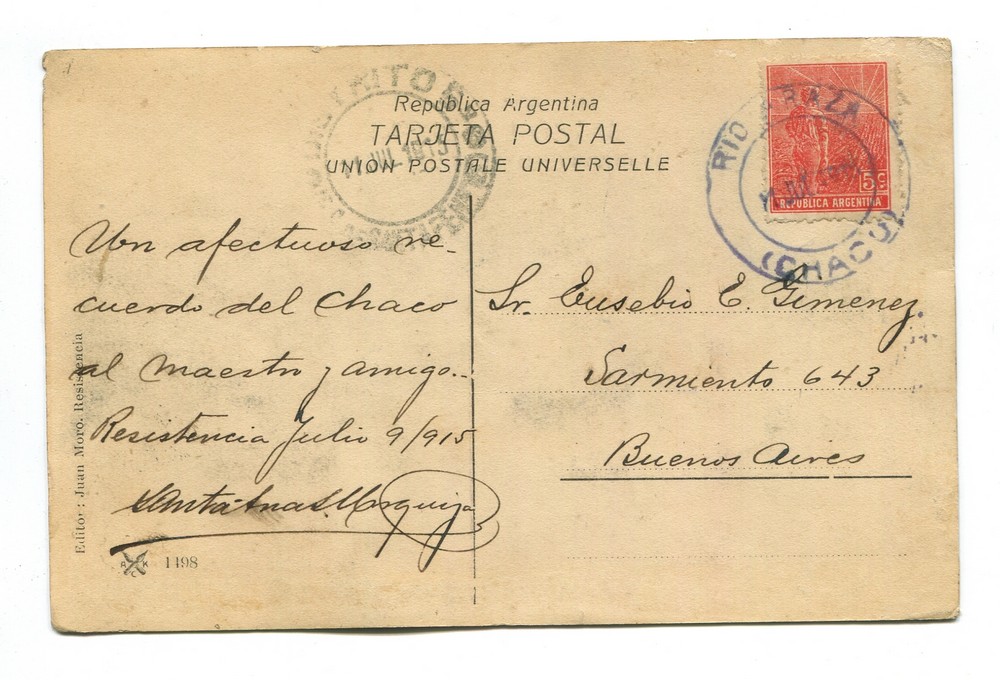 República Argentina
TARJETA POSTAL
UNION POSTALE UNIVERSELLE
RIO ARAZA
(CHACO)
5c
REPUBLICA ARGENTINA
Un afectuoso re-
cuerdo del Chaco
al maestro y amigo..
Resistencia Julio 9/915
Sr. Eusebio E. Gimenez
Sarmiento 643
Buenos Aires
Editor: Juan Moro. Resistencia
1498